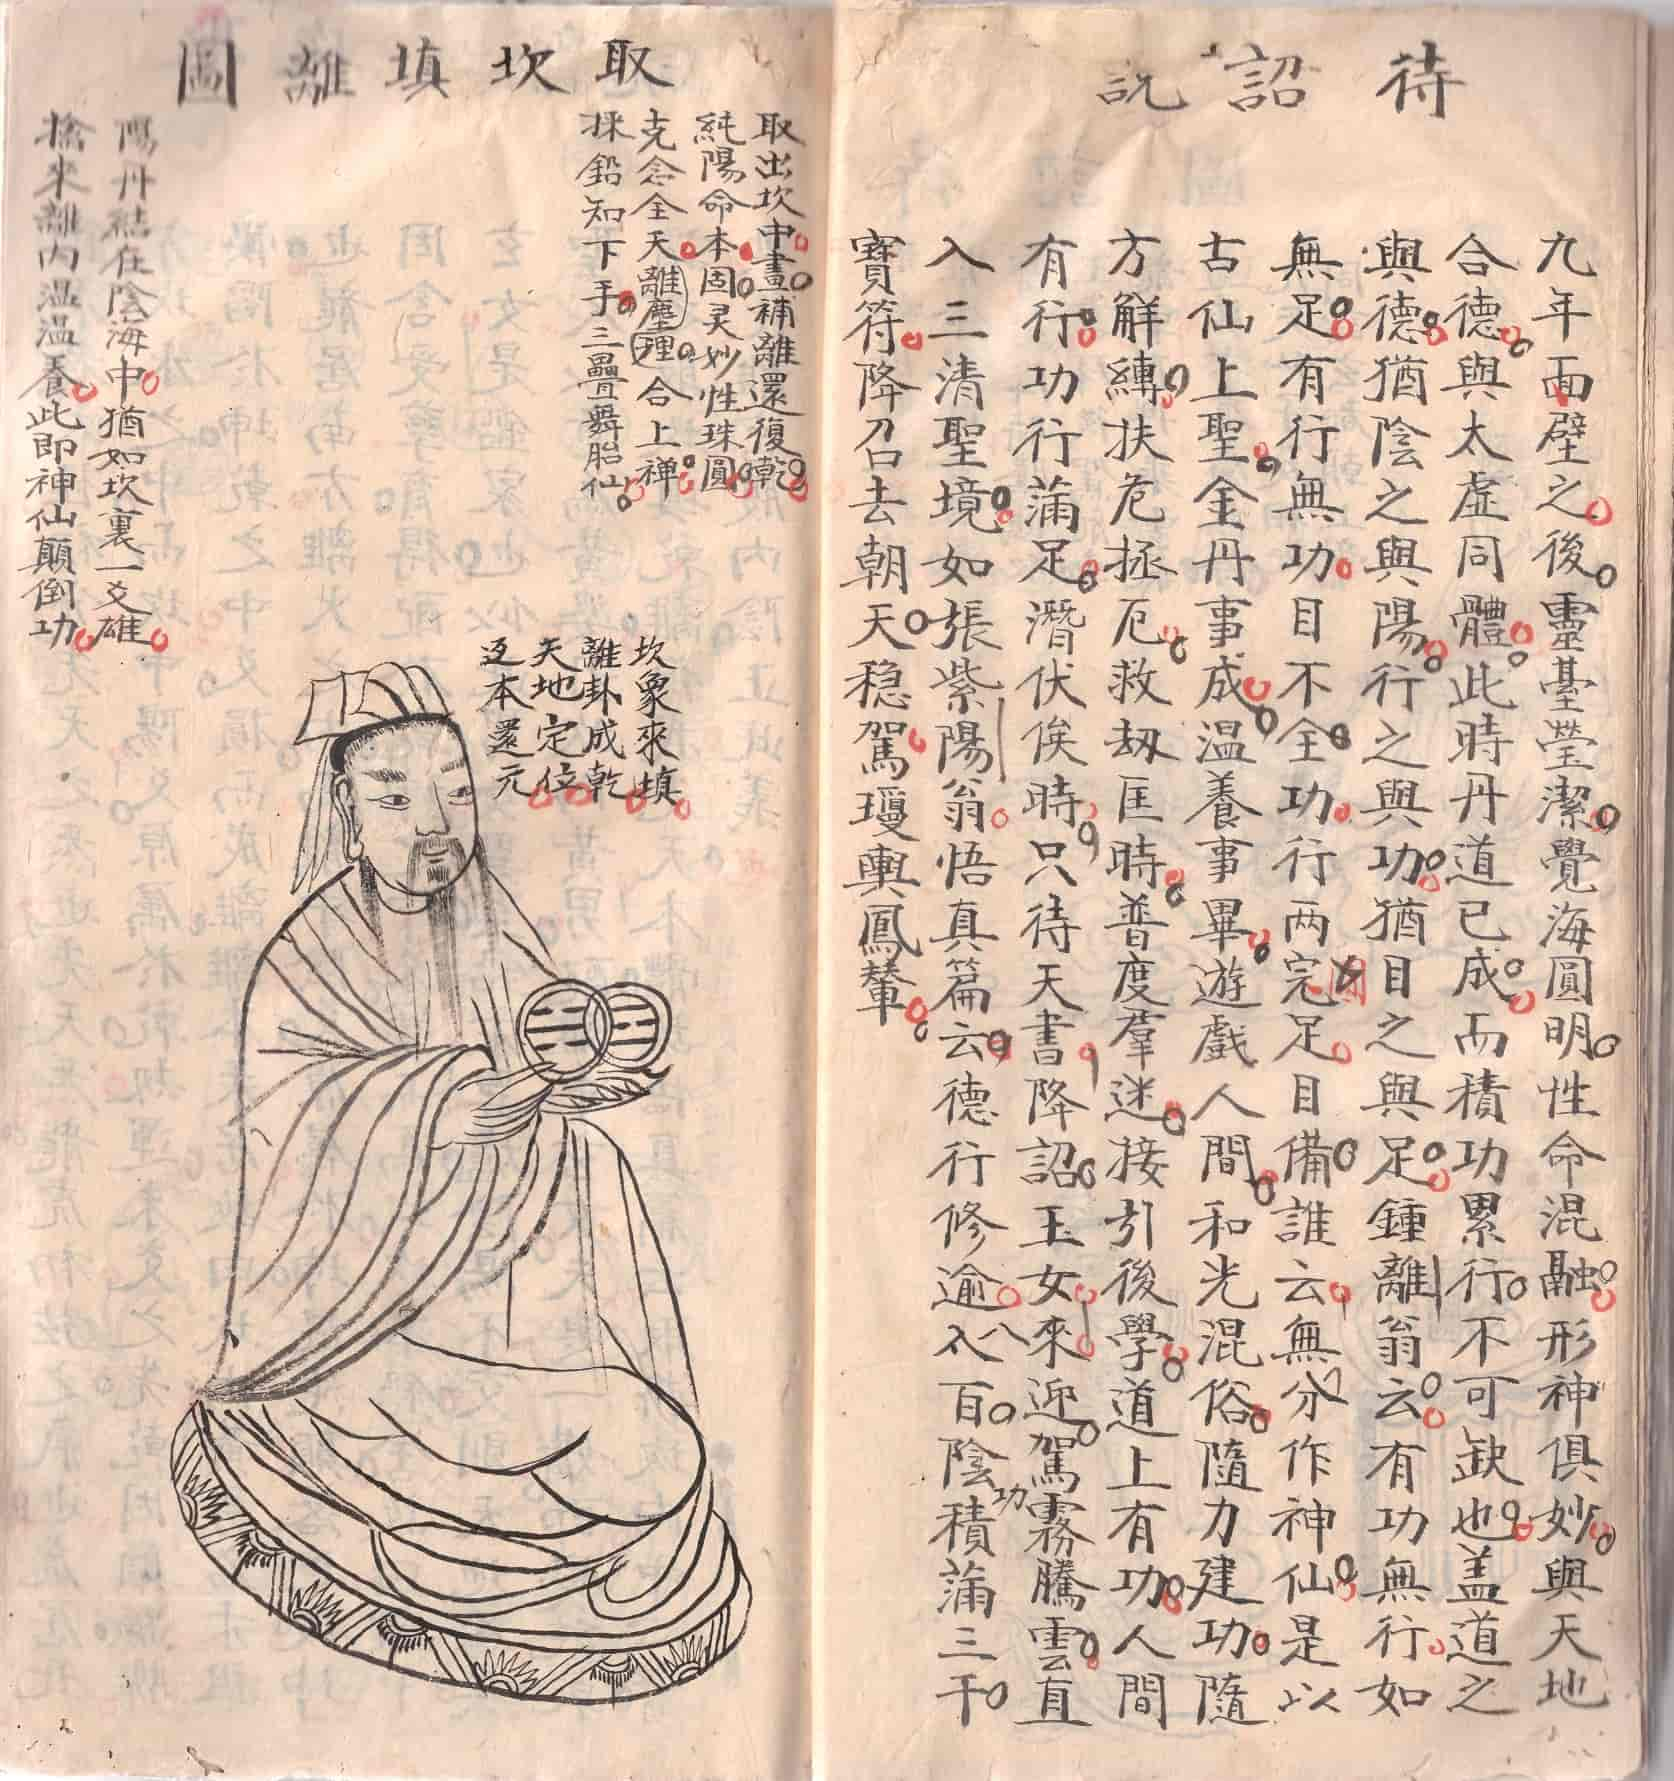 待詔說
九年面壁之後靈臺瑩潔覺海圓明性命混融形神俱妙與天地
合德與太虛同體此時丹道已成而積功累行不可缺也盖道之
與德猶陰之與陽行之與功猶目之與足鍾離翁云有功無行如
無足有行無功目不全功行两完足目備誰云無分作神仙是以
古仙上聖金丹事成温養事畢遊戲人間和光混俗隨力建功隨
方解縛扶危拯厄救刼匡時普度羣迷接引後學道上有功人間
有行功行蒲足潛伏俟時只待天書降詔玉女來迎駕霧騰雲直
入三清聖境如張紫陽翁悟真篇云德行修逾八百陰功積蒲三千
寶符降召去朝天稳駕瓊輿鳳輦
取坎填離圖
取出坎中畫補離還復乾
純陽命本固灵妙性珠圓
克念全天離塵理合上禅
採鉛知下手三疊舞胎仙
坎象來填
離卦成乾
天地定位
返本還元
陽丹結在陰海中猶如坎裏一爻雄
擒來離内温温養此即神仙顛倒功